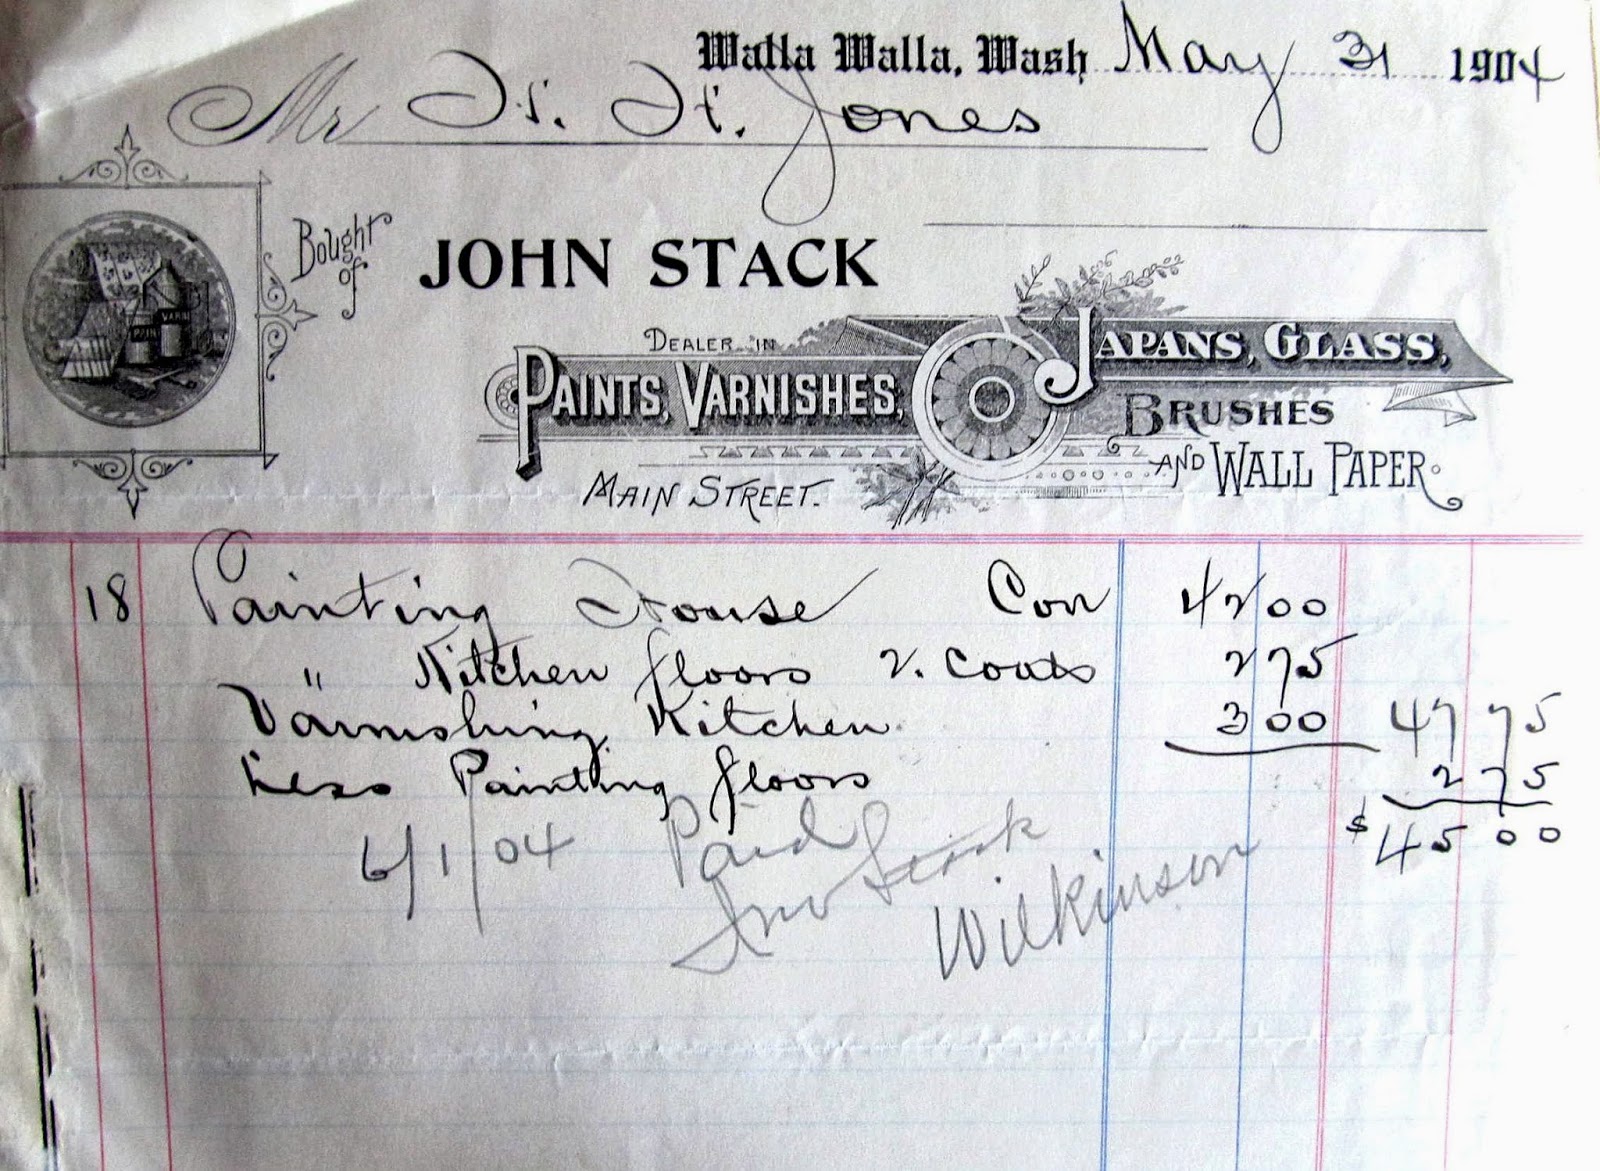 Walla Walla, Wash May 31 1904
Mr H. H. Jones
Bought of JOHN STACK
DEALER IN
PAINTS, VARNISHES, JAPANS, GLASS,
BRUSHES
AND WALL PAPER.
MAIN STREET.
PAINT VARNI
18 Painting House Con 42 00
" Kitchen floors 2. Coats 2 75
Varnishing Kitchen 3 00 47 75
Less Painting floors 2 75
$ 45 00
6/1/04 Paid
Jno Stack
Wilkinson